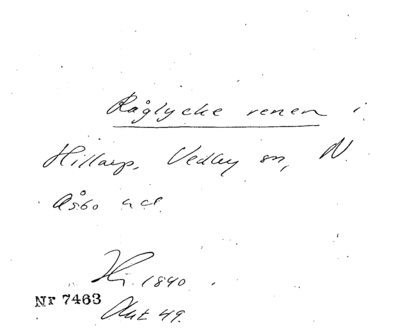 Råglycke renen i
Hillarp, Vedby sn, N.
Åsbo hd.
Hj. 1840.
Nr 7463
Akt 49.